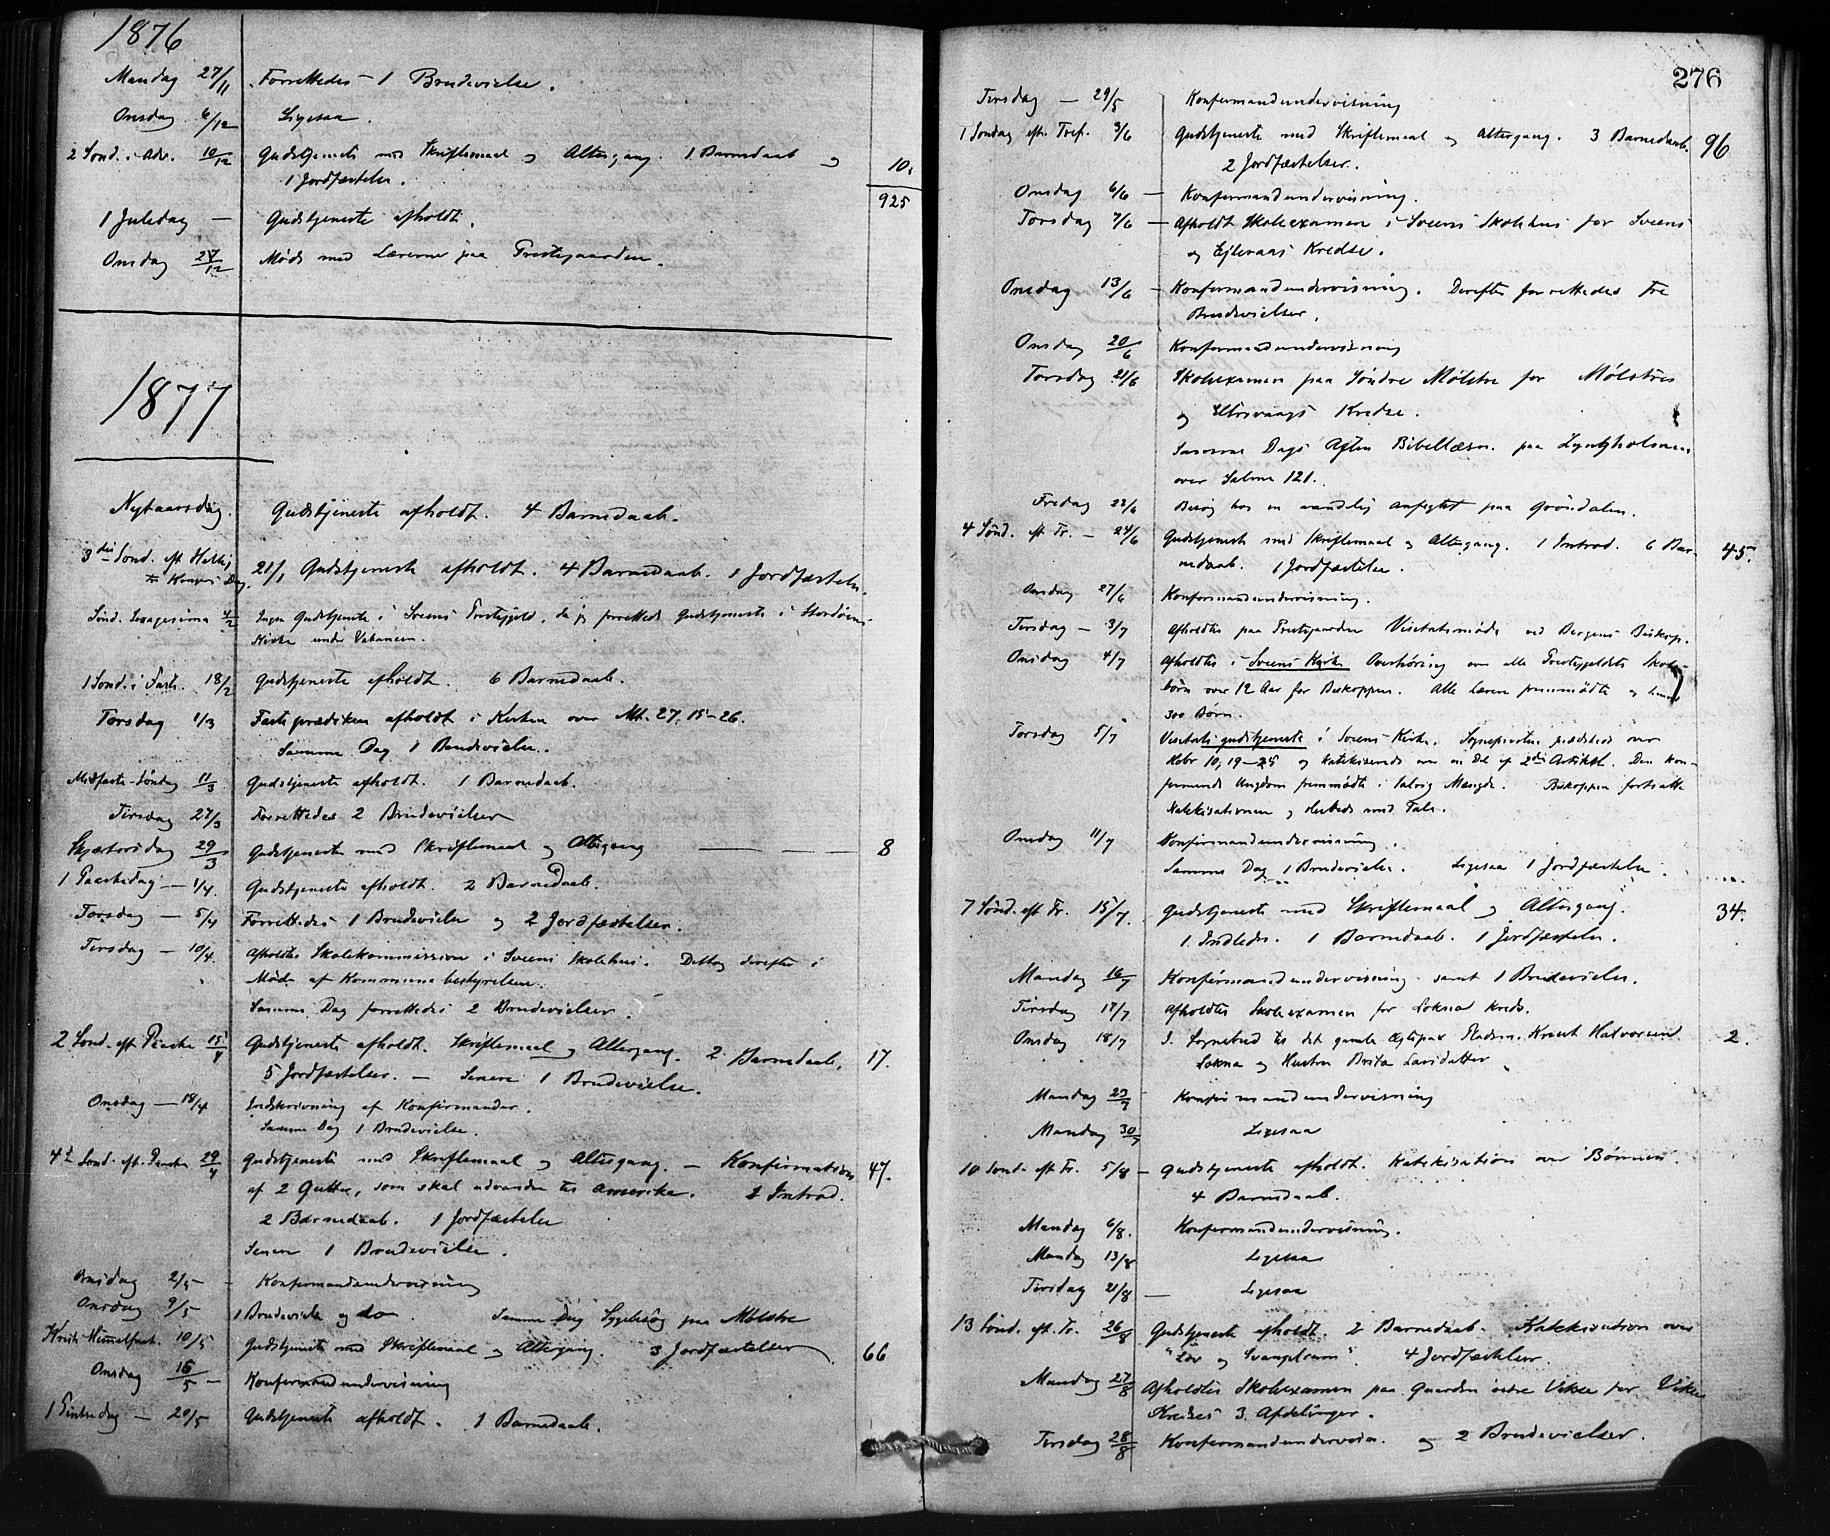 1876
Mandag 27/11 Forrettedes 1 Brudevielse.
Onsdag 6/12 Ligesaa.
2 Sønd. i Adv. 10/12 Gudstjeneste med Skriftemaal og Altergang. 1 Barnedaab og 10.
1 Jordfæstelse.
925
1 Juledag — Gudstjeneste afholdt.
Onsdag 27/12 Møde med Lærerne paa Prestegaarden.
1877
Nytaarsdag. Gudstjeneste afholdt. 4 Barnedaab.
3die Sønd. eft Hellig
3 Kongers Dag. 21/1 Gudstjeneste afholdt. 4 Barnedaab. 1 Jordfæstelse.
Sønd. Sexagesima 4/2 Ingen Gudstjeneste i Sveens Prestegjeld, da jeg forrettede Gudstjeneste i Stordøens
Kirke under Vakancen.
1 Sønd. i Faste. 18/2 Gudstjeneste afholdt. 6 Barnedaab.
Torsdag 1/3 Fasteprædiken afholdt i Kirken over Mt. 27, 15-26.
Samme Dag 1 Brudevielse.
Midfaste-Søndag 11/3 Gudstjeneste afholdt. 1 Barnedaab.
Tirsdag 27/3 Forrettedes 2 Brudevielser
Skjærtorsdag 29/3 Gudstjeneste med Skriftemaal og Altergang — — — 8
1 Paaskedag — 1/4. Gudstjeneste afholdt. 2 Barnedaab.
Torsdag — 5/4 Forrettedes 1 Brudevielse og 2 Jordfæstelser.
Tirsdag — 10/4. Afholdtes Skolekommission i Sveens Skolehus. Deltog derefter i
Møde af Kommunebestyrelsen.
Samme Dag forrettedes 2 Brudevielser.
2 Sønd. eft Paaske 15/4 Gudstjeneste afholdt. Skriftemaal og Altergang. 2 Barnedaab. 17.
5 Jordfæstelser. — Senere 1 Brudevielse.
Onsdag — 18/4 Indskrivning af Konfirmander.
Samme Dag 1 Brudevielse.
4de Sønd. eft. Paaske 29/4 Gudstjeneste med Skriftemaal og Altergang. — Konfirmation 47.
af 2 Gutter, som skal udvandre til Amerika. 1 Introd.
2 Barnedaab. 1 Jordfæstelse
Senere 1 Brudevielse.
Onsdag 2/5 — Konfirmandundervisning
Onsdag 9/5 1 Brudevielse og do. Samme Dag Sygebesøg paa Mølstre
Kristi Himmelfart. 10/5 Gudstjeneste med Skriftemaal og Altergang. 3 Jordfæstelser. 66
Onsdag 16/5 — Konfirmandundervisning
1 Pintsedag — 20/5 Gudstjeneste afholdt. 1 Barnedaab.
276
Tirsdag — 29/5 Konfirmandundervisning
1 Søndag eft. Tref. 3/6 Gudstjeneste med Skriftemaal og Altergang. 3 Barnedaab. 96
2 Jordfæstelser.
Onsdag 6/6 — Konfirmandundervisning.
Torsdag 7/6 — Afholdt Skoleexamen i Sveens Skolehus for Sveens
og Ejteraas Kredse.
Onsdag 13/6 — Konfirmandundervisning. Derefter forrettedes tre
Brudevielser.
Onsdag 20/6 Konfirmandundervisning
Torsdag 21/6 Skoleexamen paa Søndre Mølstre for Mølstres
og Kredse.
Samme Dags Aften Bibellæsn. paa Lyngholmen
over Salme 121.
Fredag 22/6 Besøg hos en aandelig anfegtet paa
4 Sønd. eft Tr. — 24/6 Gudstjeneste med Skriftemaal og Altergang. 1 Introd. 6 Bar- 45.
nedaab. 1 Jordfæstelse.
Onsdag 27/6 Konfirmandundervisning.
Tirsdag — 3/7 Afholdtes paa Prestegaarden Visitatsmøde ved Bergens Biskop.
Onsdag 4/7 Afholdtes i Sveens Kirke Overhøring over alle Prestegjeldets Skole-
børn over 12 Aar for Biskoppen. Alle Lærere fremmødte og henved
300 Børn.
Torsdag 5/7 Visitatsgudstjeneste i Sveens Kirke. Sognepresten prædikede over
Hebr 10, 19-25 og katekiserede over en Del af 2den Artikel. Den kon-
firmerede Ungdom fremmødte i talrig Mængde. Biskoppen fortsatte
Katekisationen og sluttede med Tale.
Onsdag 11/7 Konfirmandundervisning.
Samme Dag 1 Brudevielse. Ligesaa 1 Jordfæstelse.
7 Sønd. eft Tr. 15/7. Gudstjeneste med Skriftemaal og Altergang. 34.
1 Indledn. 1 Barnedaab. 1 Jordfæstelse.
Mandag 16/7 Konfirmandundervisning samt 1 Brudevielse.
Tirsdag 17/7 Afholdtes Skoleexamen for Lokna Kreds.
Onsdag 18/7 I Sognebud til det gamle Ægtepar Fladem. Knut Halvorsen 2.
Lokna og Hustru Brita Larsdatter.
Mandag 23/7 Konfirmandundervisning
Mandag 30/7 Ligesaa
10 Sønd. eft Tr. 5/8 — Gudstjeneste afholdt. Katekisation over Bønnen.
4 Barnedaab.
Mandag 6/8. Konfirmandundervisning.
Mandag 13/8 Ligesaa
Tirsdag 21/8 — Ligesaa
13 Sønd. eft. Tr. 26/8 Gudstjeneste afholdt. 2 Barnedaab. Katekisation over
"Lov og Evangelium". 4 Jordfæstelser.
Mandag 27/8 Afholdtes Skoleexamen paa Gaarden øvre Vikse for Vikse
Kredses 3 Afdelinger.
Tirsdag 28/8 Konfirmandundervisn. og 2 Brudevielser.